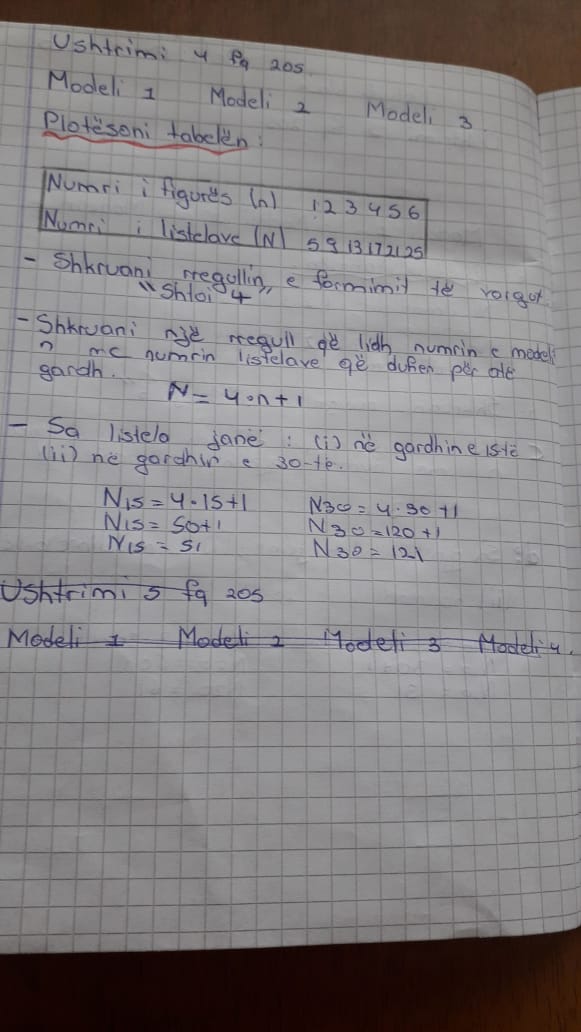 Ushtrimi 4 fq 205
Modeli 1 Modeli 2 Modeli 3
Plotësoni tabelën:
Numri i figurës (n) 1 2 3 4 5 6
Numri i listelave (N) 5 9 13 17 21 25
- Shkruani rregullin e formimit të vargut
"Shtoi 4"
- Shkruani një rregull që lidh numrin e modeli
n me numrin listelave që duhen për atë
gardh.
N = 4·n+1
- Sa listela janë : (i) në gardhin e 15të
(ii) në gardhin e 30-të.
N15 = 4·15+1 N30 = 4·30+1
N15 = 50+1 N30 = 120+1
N15 = 51 N30 = 121
Ushtrimi 5 fq 205
Modeli 1 Modeli 2 Modeli 3 Modeli 4.